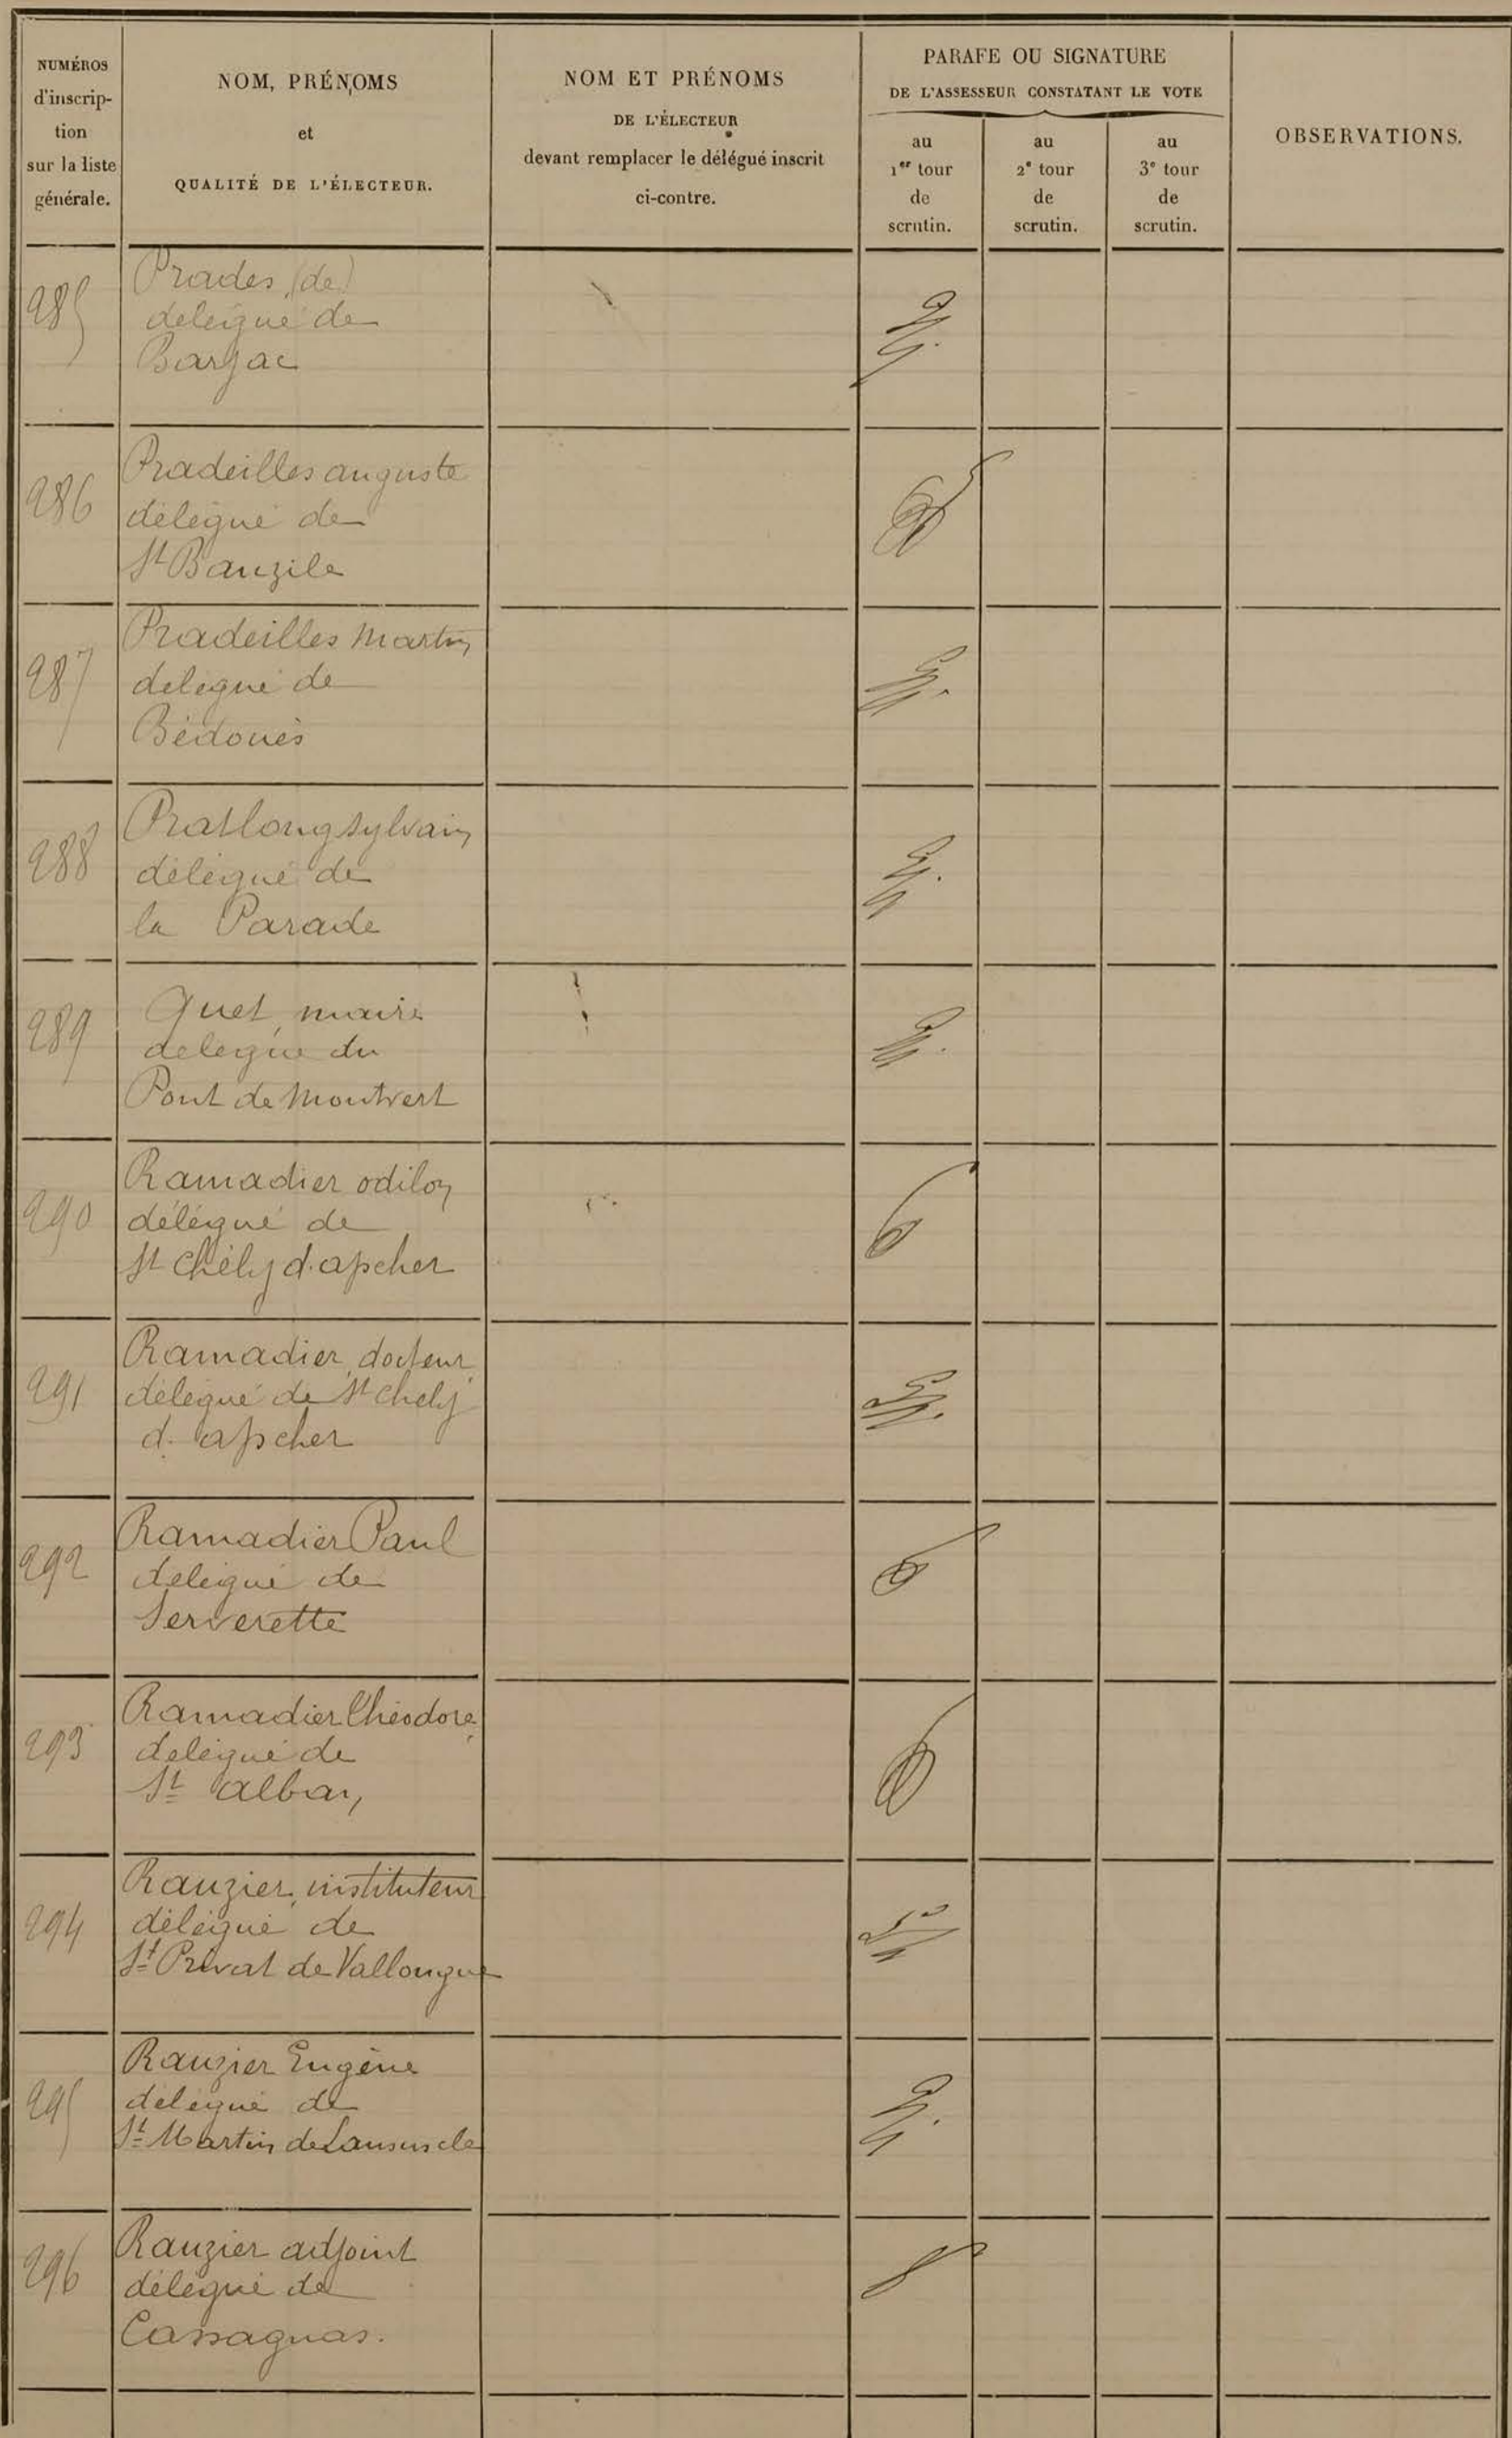 NUMÉROS
d'inscrip-
tion
sur la liste
générale.
NOM, PRÉNOMS
et
QUALITÉ DE L'ÉLECTEUR.
NOM ET PRÉNOMS
DE L'ÉLECTEUR
devant remplacer le délégué inscrit
ci-contre.
PARAFE OU SIGNATURE
DE L'ASSESSEUR CONSTATANT LE VOTE
au
1er tour
de
scrutin.
au
2e tour
de
scrutin.
au
3e tour
de
scrutin.
OBSERVATIONS.
285
Prades (de)
délégué de
Barjac
286
Pradeilles auguste
délégué de
St Bauzile
287
Pradeilles Martin
délégué de
Bédouès
288
Pratlong Sylvain
délégué de
la Parade
289
Quet, maire
délégué du
Pont de Montvert
290
Ramadier odilon
délégué de
St Chély d'apcher
291
Ramadier, docteur,
délégué de St Chely
d'apcher
292
Ramadier Paul
délégué de
Serverette
293
Ramadier Théodore,
délégué de
St alban
294
Rauzier, instituteur
délégué de
St Privat de Vallongue
295
Rauzier Eugène
délégué de
St Martin de Lansuscle
296
Rauzier adjoint
délégué de
Cassagnas.